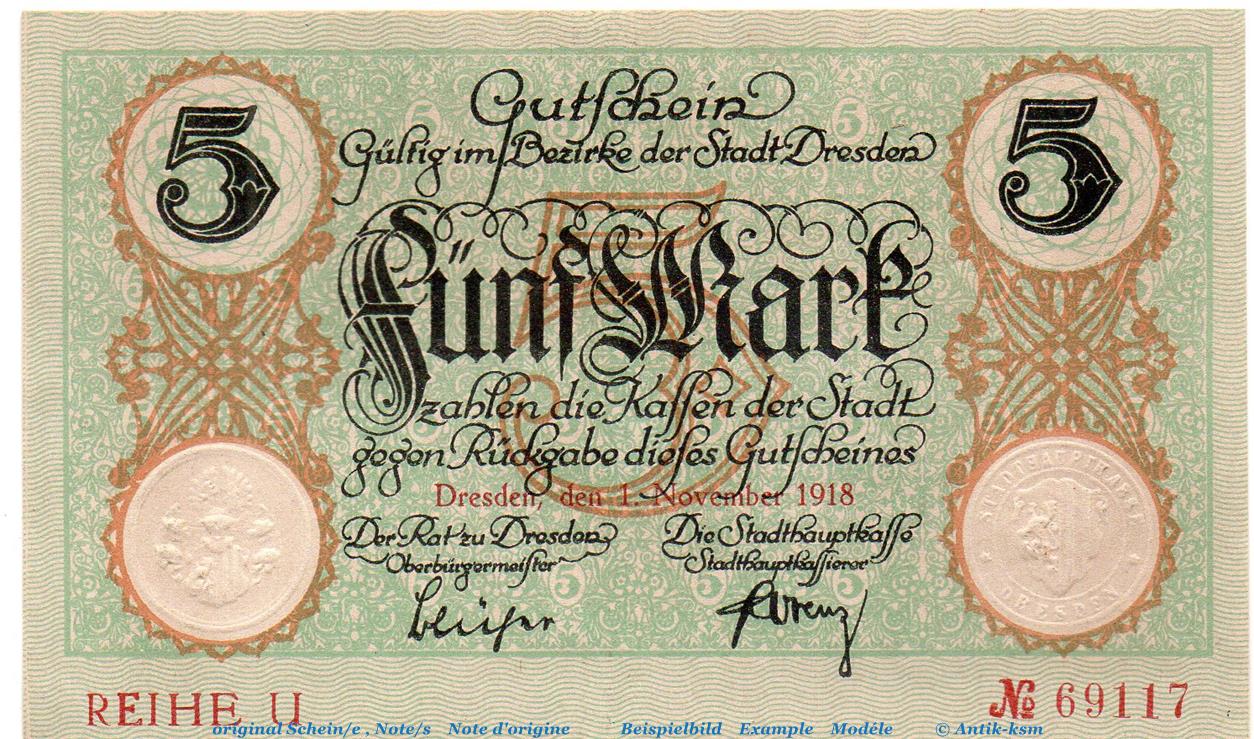 5
5
Gutschein
Gültig im Bezirke der Stadt Dresden
Fünf Mark
zahlen die Kassen der Stadt
gegen Rückgabe dieses Gutscheines
Dresden, den 1. November 1918
Der Rat zu Dresden
Oberbürgermeister
Blüher
Die Stadthauptkasse
Stadthauptkassierer
Lorenz
STADTHAUPTKASSE
DRESDEN
REIHE U
№ 69117
original Schein/e , Note/s Note d'origine Beispielbild Example Modéle © Antik-ksm